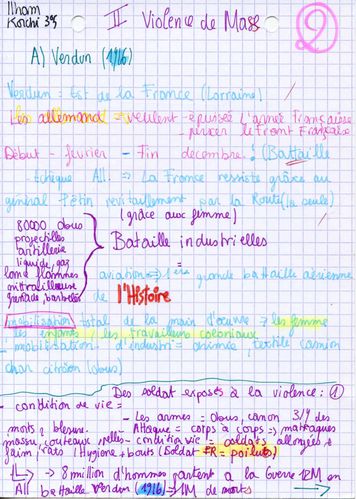 Ilham
Korchi 3°5
II Violence de Mass
2
A) Verdun (1916)
Verdun : Est de la France (Lorraine)
Les allemand = veulent - épuiser l'armée française
- percer le front Française
Début - fevrier - Fin decembre : (Battaille
- échèque All. => La France ressiste grâce au
général Pétin revitaillement par la Route (la seule)
(grâce aux femme)
80000 obus
projectilles
lantillerie
liquide, gaz
lance flammes
mittrailleuse
grenade barbelés
Bataille industrielles
=
aviation => 1ère grande battaille aérienne
de l'Histoire
mobilisation total de la main d'œuvre => les femme
les enfants / les travailleurs coloniaux
- mobilisation d'industri = chimie, textile camion
char aviation (obus)
Des soldat exposés à la violence : 1
- condition de vie =
- Les armes = obus, canon 3/9 des
morts & blesure. Attaque = corps à corps => matraques
massu, couteaux pelles - condition vie = soldats allongés &
faim, rats / Hygiene + bouts (Soldat FR = poilus)
=> 8 million d'hommes partent a la Guerre 12M en
All battaille Verdun (1916) = 1M de morts